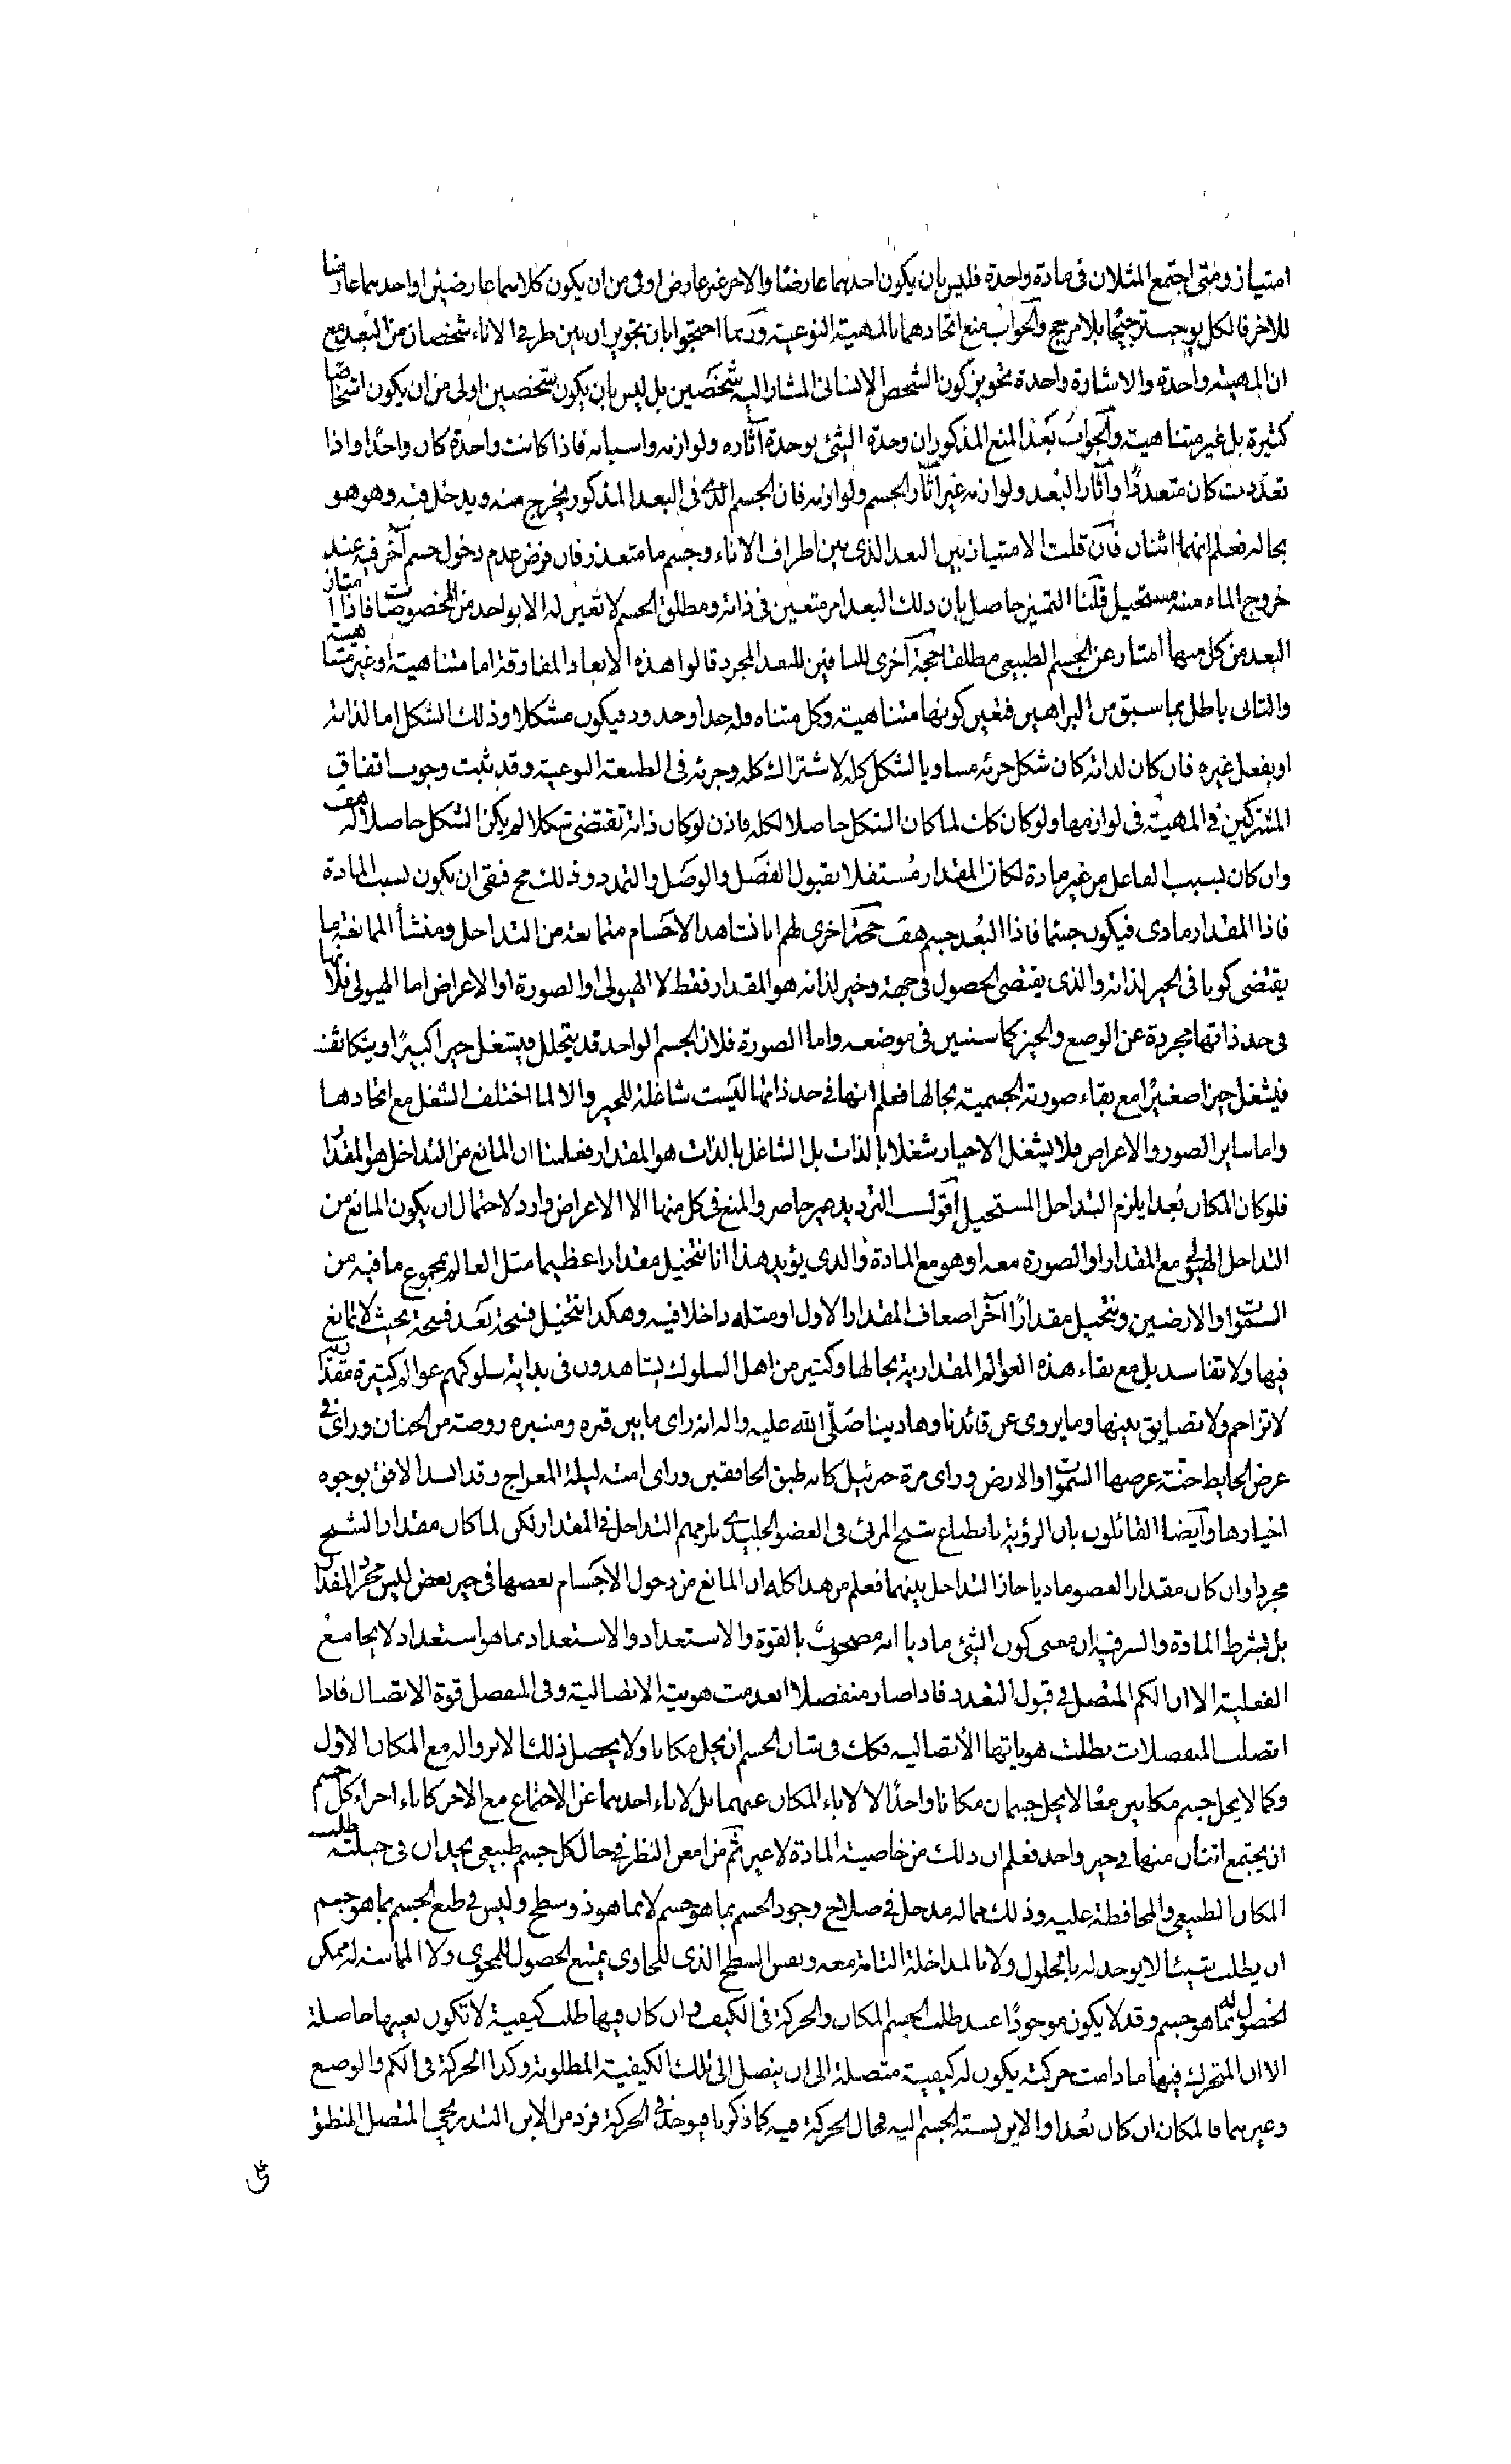 امتياز ومتى اجتمع المثلان فى مادة واحدة فليس بان يكون احدهما عارضا والاخر غير عارض اولى من ان يكون كلاهما عارضين او احدهما عارضا
للاخر فالكل يوجب ترجيحا بلا مرجح والجواب منع اتحادهما بالمهية النوعية وربما احتجوا بان تجويز ان بين طرفى الاناء شخصان من البعد مع
ان المهية واحدة والاشارة واحدة تجويز كون الشخص الانسانى المشار اليه شخصين بل ليس بان يكون شخصين اولى من ان يكون اشخاصا
كثيرة بل غير متناهية والجواب بعد المنع المذكور ان وحدة الشئ بوحدة آثاره ولوازمه واسبابه فاذا كانت واحدة كان واحدا واذا
تعددت كان متعددا وآثار البعد ولوازمه غير آثار الجسم ولوازمه فان الجسم الذى فى البعد المذكور يخرج منه ويدخل فيه وهو هو
بحاله فعلم انهما اثنان فان قلت الامتياز بين البعد الذى بين اطراف الاناء وجسم ما متعذر فان فرض عدم دخول جسم آخر فيه عند
خروج الماء منه مستحيل قلنا التميز حاصل بان ذلك البعد امر متعين فى ذاته ومطلق الجسم لا تعين له الا بواحد من الخصوصيات فاذا امتاز
البعد من كل منها امتاز عن الجسم الطبيعى مطلقا حجة اخرى للنافين للبعد المجرد قالوا هذه الابعاد المفارقة اما متناهية او غير متناهية
والثانى باطل بما سبق من البراهين فتعين كونها متناهية وكل متناه وله حد او حدود فيكون مشكلا وذلك الشكل اما لذاته
او بفعل غيره فان كان لذاته كان شكل جزئه مساويا لشكل كله لاشتراك كله وجزئه فى الطبيعة النوعية وقد ثبت وجوب اتفاق
المشتركين فى المهية فى لوازمها ولو كان كك لما كان الشكل حاصلا لكله فاذن لو كان ذاته تقتضى شكلا لم يكن الشكل حاصلا له هف
وان كان بسبب الفاعل من غير مادة لكان المقدار مستقلا بقبول الفصل والوصل والتمدد وذلك مح فبقى ان يكون لسبب المادة
فاذا المقدار مادى فيكون جسما فاذا البعد جسم هف حجة اخرى لهم انا نشاهد الاجسام متمانعة من التداخل ومنشأ الممانعة ما
يقتضى كونها فى الحيز لذاته والذى يقتضى الحصول فى جهة وحيز لذاته هو المقدار فقط لا الهيولى والصورة او الاعراض اما الهيولى فلانها
فى حد ذاتها مجردة عن الوضع والحيز كما سنبين فى موضعه واما الصورة فلان الجسم الواحد قد يتخلل فيشغل حيزا كبيرا ويتكاثف
فيشغل حيزا صغيرا مع بقاء صورته الجسمية بحالها فعلم انها فى حد ذاتها ليست شاغلة للحيز والا لما اختلف الشغل مع اتحادها
واما ساير الصور والاعراض فلا يشغل الاحياز شغلا بالذات بل الشاغل بالذات هو المقدار فعلمنا ان المانع من التداخل هو المقدار
فلو كان المكان بعدا يلزم التداخل المستحيل اقول الترديد غير حاصر والمنع فى كل منها الا الاعراض وارد لاحتمال ان يكون المانع من
التداخل الهيولى مع المقدار او الصورة معه او هو مع المادة والذى يؤيد هذا انا نتخيل مقدارا عظيما مثل العالم بمجموع ما فيه من
السموات والارضين ونتخيل مقدارا آخر اضعاف المقدار الاول او مثله داخلا فيه وهكذا نتخيل فسحة بعد فسحة بحيث لا تمانع
فيها ولا تفاسد بل مع بقاء هذه العوالم المقدارية بحالها وكثير من اهل السلوك يشاهدون فى بداية سلوكهم عوالم كثيرة مقدارية
لا تزاحم ولا تضايق بينها وما يروى عن قائدنا وهادينا صلى الله عليه واله انه راى ما بين قبره ومنبره روضة من الجنان وراى فى
عرض الحايط جنة عرضها السموات والارض وراى مرة جبرئيل كانه طبق الخافقين وراى امته ليلة المعراج وقد انسد الافق بوجوه
اخيارها وايضا القائلون بان الرؤية بانطباع شبح المرئى فى العضو الجليدى يلزمهم التداخل فى المقدار لكن لما كان مقدار الشبح
مجردا وان كان مقدار العضو ماديا جاز التداخل بينهما فعلم من هذا كله ان المانع من دخول الاجسام بعضها فى حيز بعض ليس مجرد المقدار
بل بشرط المادة والسر فيه ان معنى كون الشئ ماديا انه مصحوب بالقوة والاستعداد والاستعداد بما هو استعداد لا يجامع
الفعلية الا ان الكم المتصل فى قبول التعدد فاذا صار منفصلا انعدمت هويته الاتصالية وفى المنفصل قوة الاتصال فاذا
اتصلت المنفصلات بطلت هوياتها الانفصالية فكك فى شان الجسم ان يحل مكانا ولا يحصل ذلك الا بزواله مع المكان الاول
وكما لا يحل جسم مكانين معا لا يحل جسمان مكانا واحدا لا لاباء المكان عنهما بل لاباء احدهما عن الاجتماع مع الاخر كاباء اجزاء كل جسم
ان يجتمع اثنان منها فى حيز واحد فعلم ان ذلك من خاصية المادة لا غير ثم من امعن النظر فى حال كل جسم طبيعى يجد ان فى جبلته طلب
المكان الطبيعى والمحافظة عليه وذلك مما له مدخل فى صلاح وجود الجسم بما هو جسم لا بما هو ذو سطح وليس فى طبع الجسم بما هو جسم
ان يطلب شيئا لا يوجد له بالحلول ولا بالمداخلة التامة معه ونفس السطح الذى للحاوى يمتنع الحصول للمحوى ولا المماسة له ممكن
الحصول له بما هو جسم وقد لا يكون موجودا عند طلب الجسم المكان والحركة فى الكيف وان كان فيها طلب كيفية لا تكون بعينها حاصلة
الا ان المتحرك فيها ما دامت حركته يكون له كيفية متصلة الى ان ينصل الى تلك الكيفية المطلوبة وكذا الحركة فى الكم والوضع
وغيرهما فالمكان ان كان بعدا والاين نسبة الجسم اليه فحال الحركة فيه كما ذكرنا فيوجد فى الحركة فرد من الاين التدريجى المتصل المنطبق